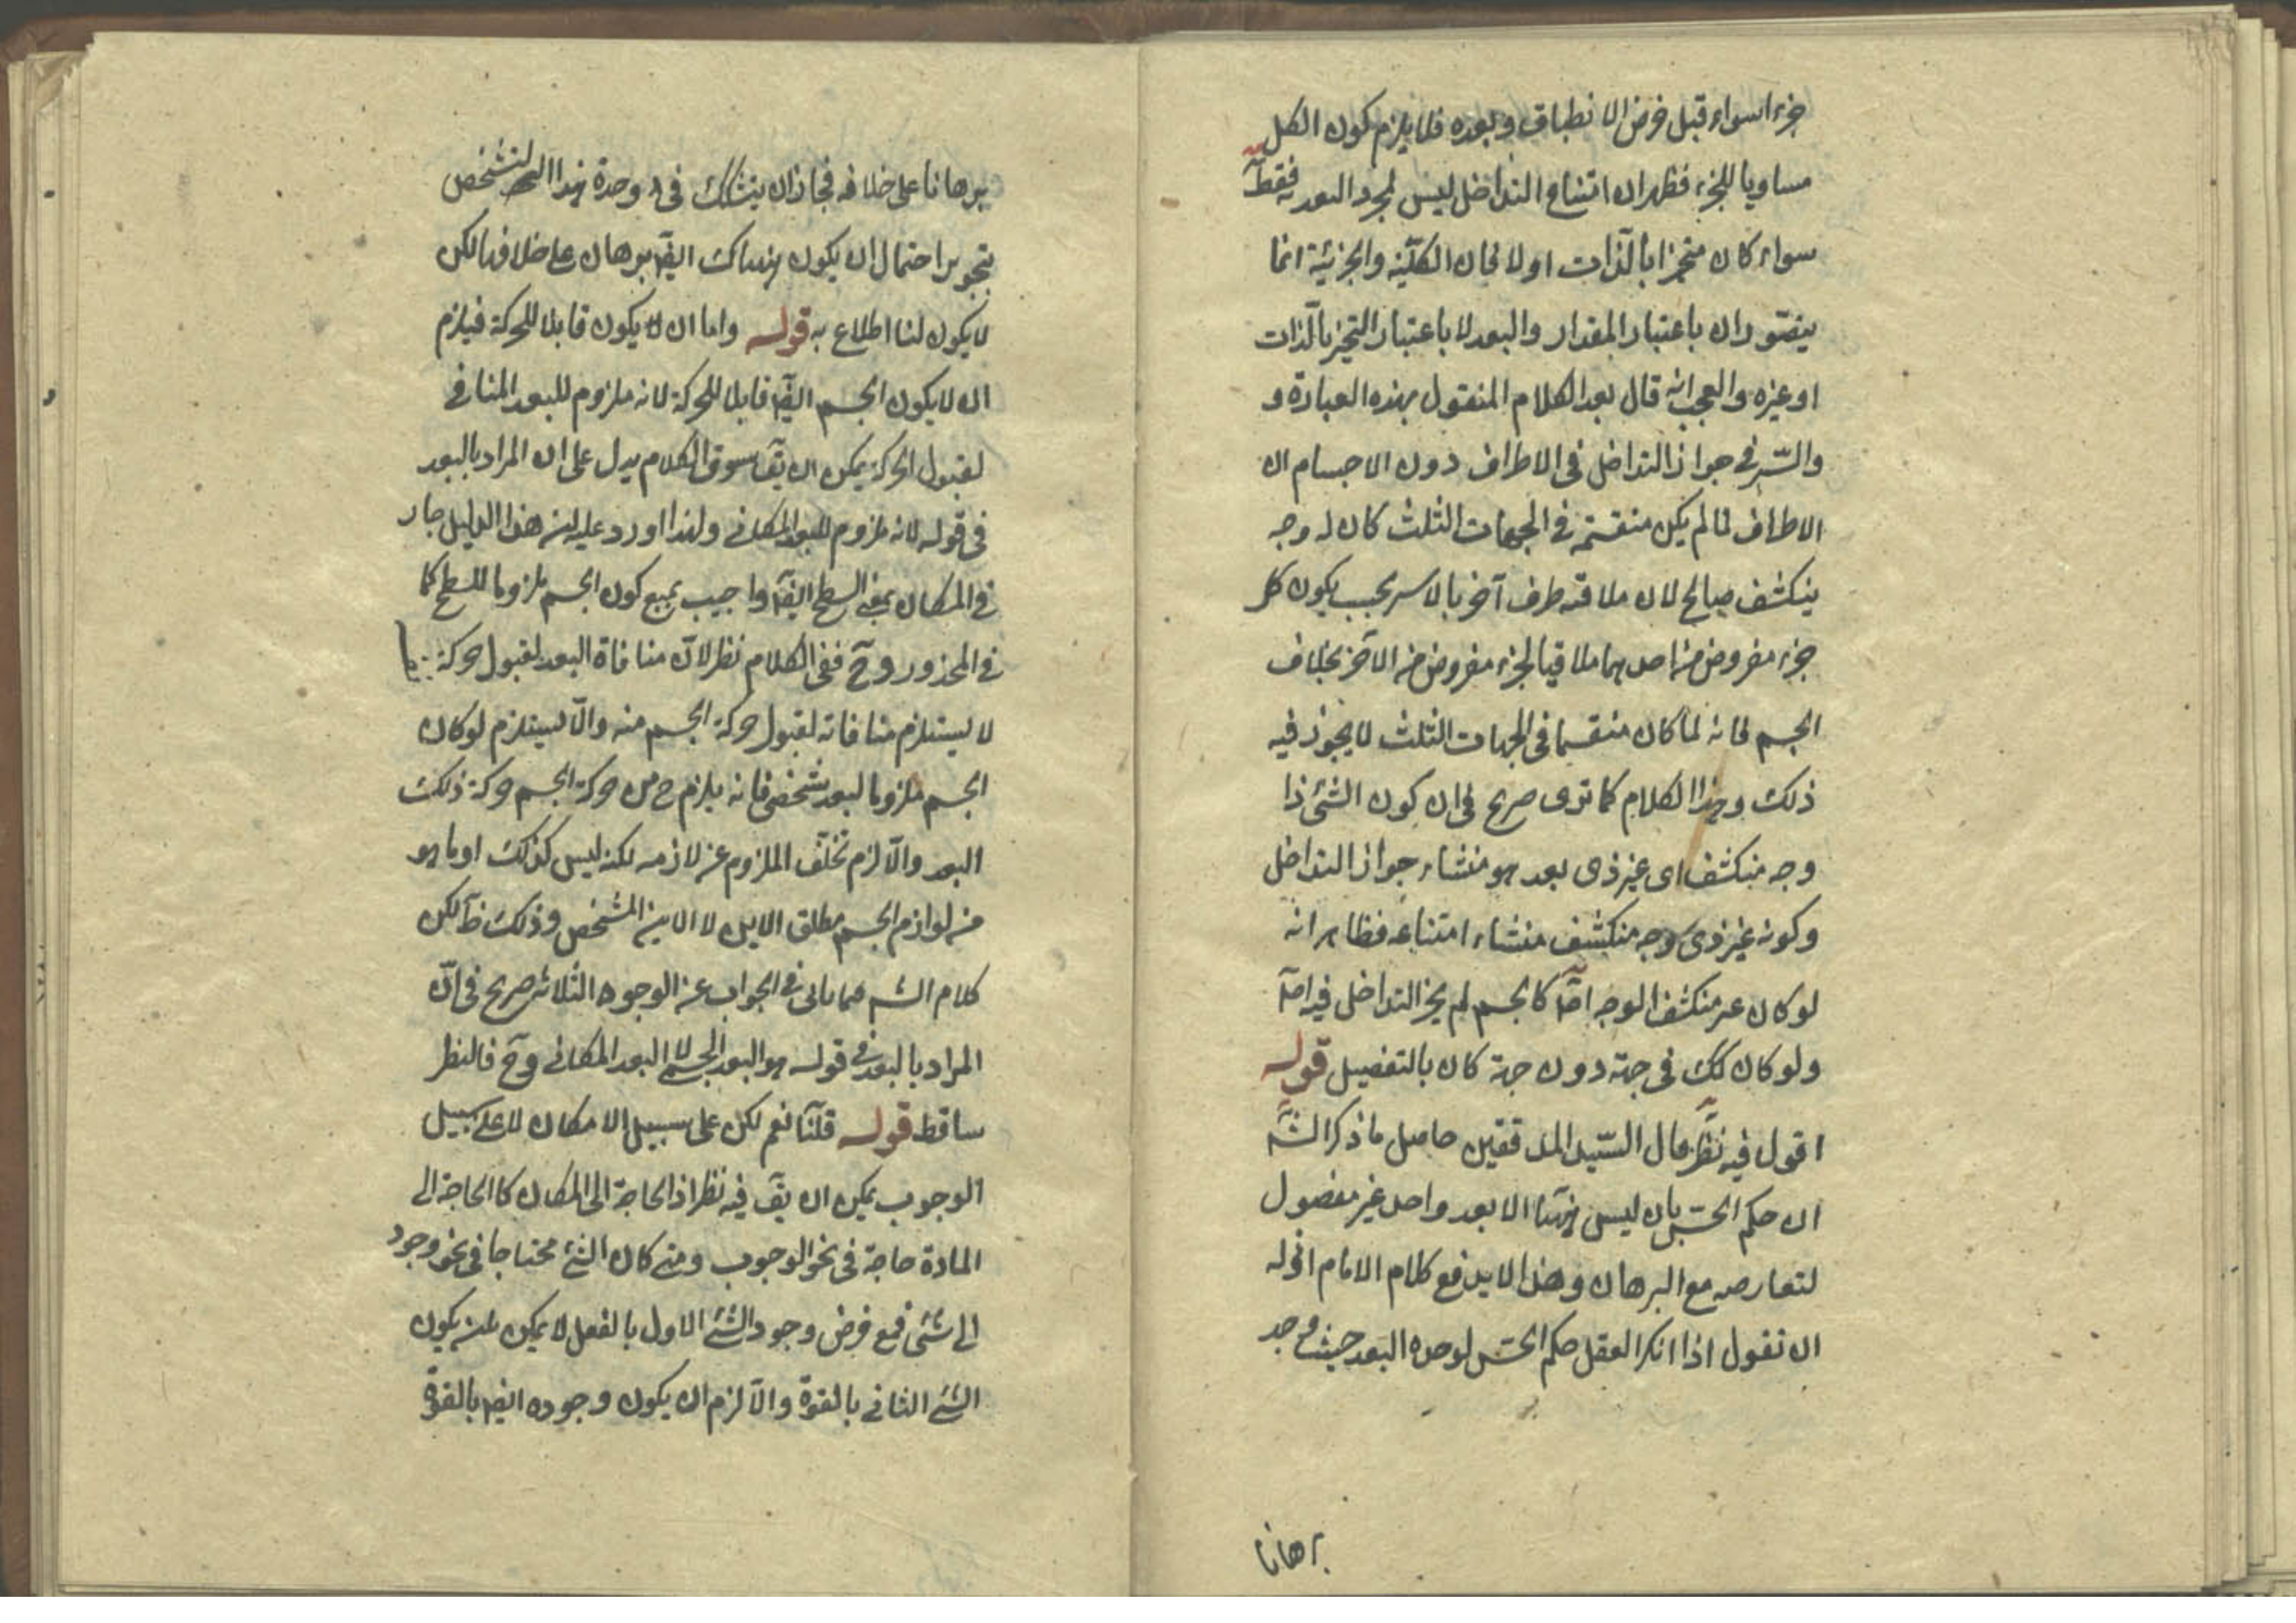 جزء اسواء قبل فرض الانطباق وبعده فلا يلزم كون الكل
مساويا للجزء فظهر ان امتناع التداخل ليس لمجرد البعدية فقط
سواء كان متحيزا بالذات اولا فان الكلية والجزئية انما
يتصوران باعتبار المقدار والبعد لا باعتبار التحيز بالذات
او غيره والعجب انه قال بعد الكلام المنقول بهذه العبارة و
والسّر في جواز التداخل في الاطراف دون الاجسام ان
الاطراف لما لم يكن منقسمة في الجهات الثلث كان له وجه
ينكشف صالح لان ملاقته طرف آخر بالاسر بحيث يكون كل
جزء مفروض من احدهما ملاقيا لجزء مفروض من الآخر بخلاف
الجسم فانه لما كان منقسما في الجهات الثلث لا يجوز فيه
ذلك وهذا الكلام كما ترى صريح في ان كون الشئ ذا
وجه منكشف اى غير ذى بعد هو منشاء جواز التداخل
وكونه غير ذى وجه منكشف منشاء امتناعه فظاهر انه
لو كان غير منكشف الوجه اصلا كالجسم لم يجز التداخل فيه اصلا
ولو كان كك في جهة دون جهة كان بالتفصيل قوله
اقول فيه نظر قال السّيد المدققين حاصل ما ذكر الش
ان حكم الحسّ بان ليس هنا الا بعد واحد غير مفصول
لتعارضه مع البرهان وهذا لا يدفع كلام الامام اذ له
ان نقول اذا انكر العقل حكم الحسّ لوحدة البعد حيث وجد
برهانا
برهانا على خلافه فجاز ان يتشكك في وحدة هذا التشخص
بتجويز احتمال ان يكون هناك ايضا برهان على خلافه لكن
لا يكون لنا اطلاع به قوله واما ان لا يكون قابلا للحركة فيلزم
ان لا يكون الجسم ايضا قابلا للحركة لانه ملزوم للبعد المنافي
لقبول الحركة يمكن ان يق سوق الكلام يدل على ان المراد بالبعد
في قوله لانه ملزوم للبعد المكانى ولهذا اورد عليه ان هذا الدليل جار
في المكان بمعنى السطح ايضا واجيب بمنع كون الجسم ملزوما للسطح كما
في المحذور وح ففي الكلام نظر لانّ منافاة البعد لقبول حركة
لا يستلزم منافاته لقبول حركة الجسم منه والاّ يستلزم لو كان
الجسم ملزوما لبعد شخصى فانه يلزم ح من حركة الجسم حركة ذلك
البعد والاّ لزم تخلّف الملزوم عن لازمه لكنه ليس كذلك او ما هو
من لوازم الجسم مطلق الاين لا الاين المشخص وذلك ظ لكن
كلام الش مما ياتى في الجواب عن الوجوه الثلاثة صريح في انّ
المراد بالبعد في قوله هو البعد الجسمى لا البعد المكانى وح فالنظر
ساقط قوله قلنا نعم لكن على سبيل الامكان لا على سبيل
الوجوب يمكن ان يق فيه نظر اذ الحاجة الى المكان كالحاجة الى
المادة حاجة في نحو الوجوب ومتى كان الشئ محتاجا في نحو وجود
الى شئى فمع فرض وجود الشئ الاول بالفعل لا يمكن ان يكون
الشئ الثانى بالقوة والاّ لزم ان يكون وجوده ايضا بالقوة